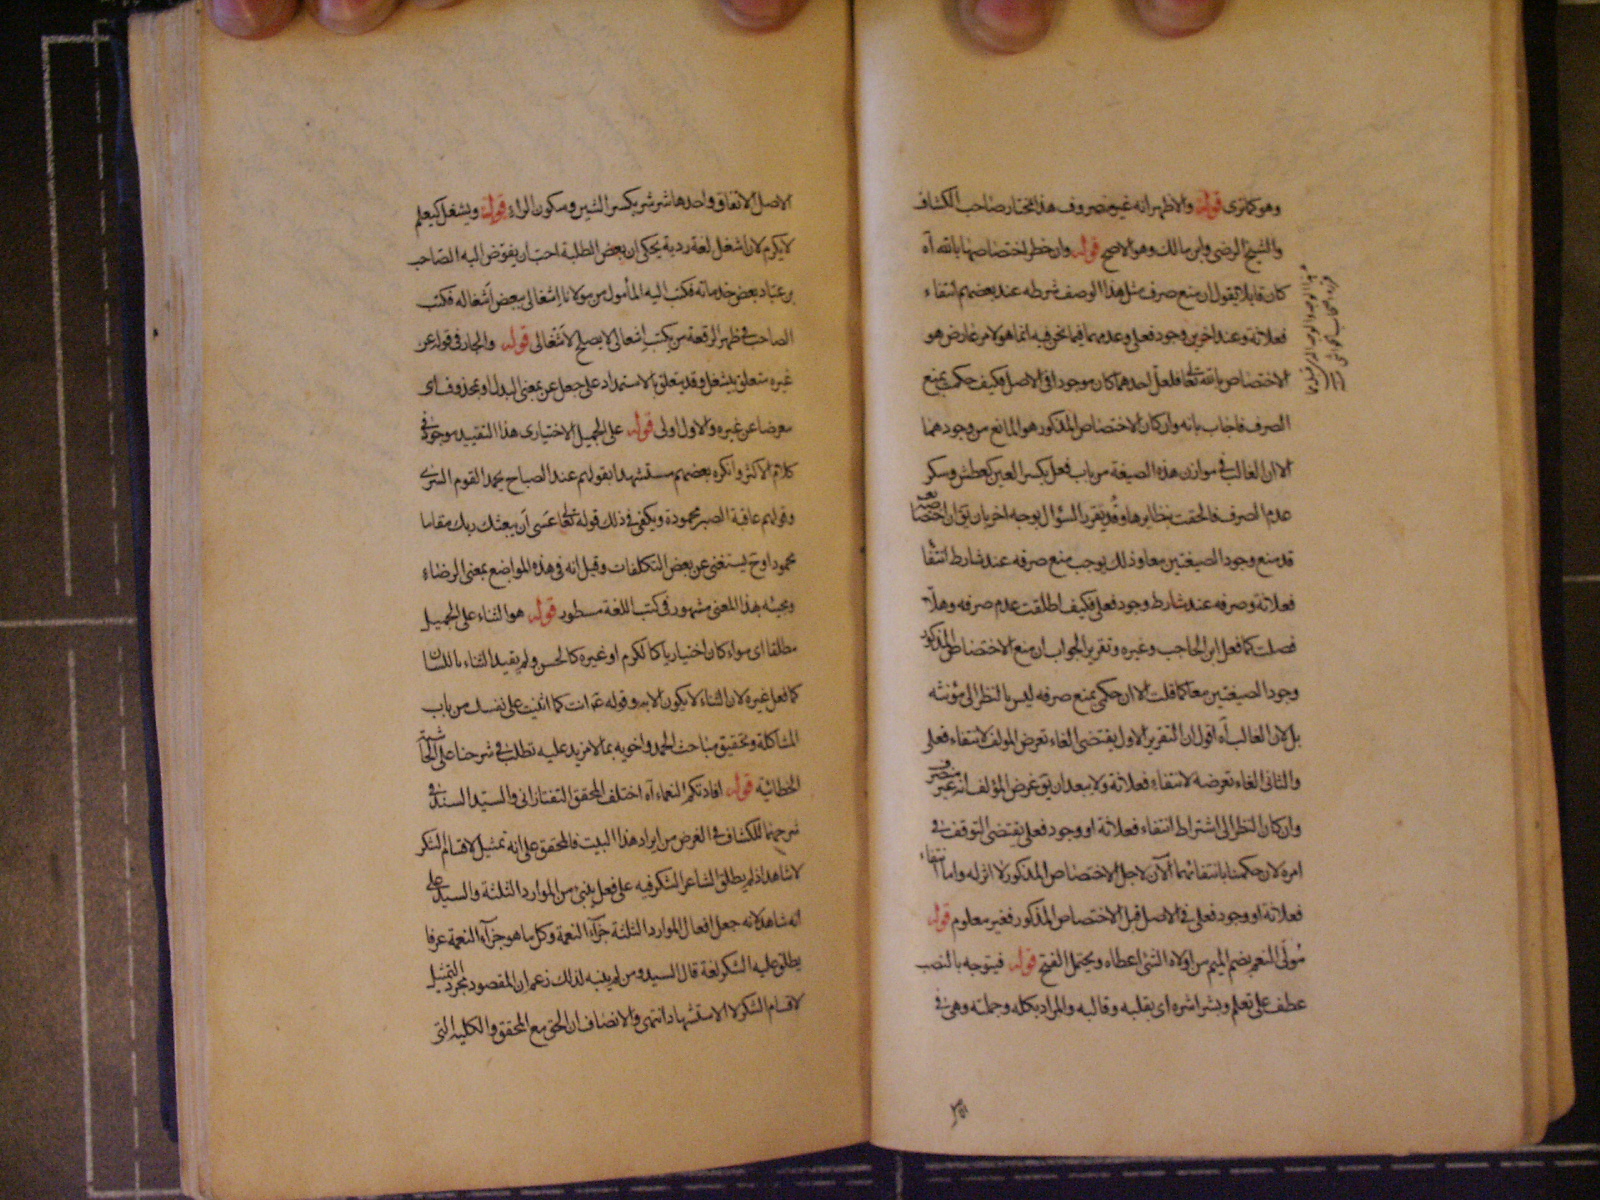 وهو كما ترى قوله والاظهر انه غير مصروف هذا مختار صاحب الكشاف
والشيخ الرضى وابن مالك وهو الاصح قوله وان خطر اختصاصها بالله آه
كان قايلا يقول ان منع صرف مثل هذا الوصف شرطه عند بعضهم انتفاء
فعلانة وعند اخرين وجود فعلى وعدمهما فيما نحن فيه انما هو لامر عارض هو
الاختصاص بالله تعالى فلعل احدهما كان موجودا فى الاصل فكيف حكمت بمنع
الصرف فاجاب بانه وان كان الاختصاص المذكور هو المانع من وجودهما
الا ان الغالب فى موازن هذه الصيغة من باب فعل بكسر العين كعطش وسكر
عدم الصرف فالحقت بنظايرها وقد يقرر السؤال بوجه اخر بان يق ان اختصاصه
قد منع وجود الصيغتين معا وذلك يوجب منع صرفه عند شارط انتفا
فعلانة وصرفه عند شارط وجود فعلى فكيف اطلقت عدم صرفه وهلا
فصلت كما فعل ابن الحاجب وغيره وتقرير الجواب ان منع الاختصاص المذكور
وجود الصيغتين معا كما قلت الا ان حكمى بمنع صرفه ليس بالنظر الى مؤنثه
بل لان الغالب آه اقول ان التقرير الاول يقتضى الغاء تعرض المؤلف لانتفاء فعلى
والثانى الغاء تعرضه لانتفاء فعلانة ولا يبعد ان يق غرض المؤلف انه غير منصرف
وان كان النظر الى اشتراط انتفاء فعلانة او وجود فعلى يقتضى التوقف فى
امره لان حكمنا بانتفائهما الآن لاجل الاختصاص المذكور لا اثر له واما انتفاء
فعلانة او وجود فعلى فى الاصل قبل الاختصاص المذكور فغير معلوم قوله
مولى النعم بضم الميم من اولاه الشئ اعطاه ويحتمل الفتح قوله فيتوجه بالنصب
عطف على تعلم وبشراشره اى بقلبه وقالبه والمراد بكله وجملته وهى فى
الاصل الاثقال وواحدها شرشر بكسر الشين وسكون الراء قوله ويشغل كيعلم
لا يكرم لان اشغل لغة ردية يحكى ان بعض الطلبة احب ان يفوض اليه الصاحب
بن عباد بعض خدماته فكتب اليه المأمول من مولانا اشغالى ببعض اشغاله فكتب
الصاحب فى ظهر الرقعة من يكتب اشغالى لا يصلح لاشغالى قوله والجار فى قوله عن
غيره متعلق بيشغل وقد يتعلق بالاستمداد على جعل عن بمعنى البدل او بمحذوف اى
معرضا عن غيره والاول اولى قوله على الجميل الاختيارى هذا التقييد موجود فى
كلام الاكثر وانكره بعضهم مستشهدا بقولهم عند الصباح يحمد القوم السرى
وقولهم عاقبة الصبر محمودة ويكفى فى ذلك قوله تعالى عسى ان يبعثك ربك مقاما
محمودا وح يستغنى عن بعض التكلفات وقيل انه فى هذه المواضع بمعنى الرضاء
ومجيئه بهذا المعنى مشهور فى كتب اللغة مسطور قوله هو الثناء على الجميل
مطلقا اى سواء كان اختياريا كالكرم او غيره كالحسن ولم يقيد الثناء باللسان
كما فعل غيره لان الثناء لا يكون الا به وقوله عم انت كما اثنيت على نفسك من باب
المشاكلة وتحقيق مباحث الحمد واخويه بما لا مزيد عليه تطلب فى شرحنا على الحاشية
الخطائية قوله افادتكم النعماء آه اختلف المحقق التفتازانى والسيد السند فى
شرحيهما للكشاف فى الغرض من ايراد هذا البيت فالمحقق على انه تمثيل لاقسام الشكر
لا شاهد اذ لم يطلق الشاعر الشكر فيه على فعل ينبئ من الموارد الثلثة والسيد على
انه شاهد لانه جعل افعال الموارد الثلثة جزآء النعمة وكل ما هو جزآء النعمة عرفا
يطلق عليه الشكر لغة قال السيد ومن لم ينبه لذلك زعم ان المقصود مجرد التمثيل
لاقسام الشكر لا الاستشهاد انتهى والانصاف ان الحق مع المحقق والكلية التى